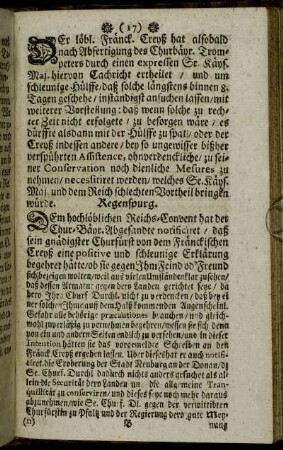 (17)
DEr löbl. Fränck. Creyß hat alsobald
nach Abfertigung des Churbäyr. Trom-
peters durch einen expressen Sr. Käys.
Maj. hiervon Cachricht ertheilet / und um
schleunige Hülffe/ daß solche längstens binnen 8.
Tagen geschehe/ inständigst ansuchen lassen/ mit
weiterer Vorstellung: daß wenn solche zu rech-
ter Zeit nicht erfolgete / zu besorgen wäre / es
dürffte alsdann mit der Hülffe zu spat/ oder der
Creyß indessen andere / bey so ungewisser bißher
verspührten Assistence, ohnverdenckliche/ zu sei-
ner Conservation noch dienliche Mesures zu
nehmen/ necessitiret werden/ welches Sr. Käys.
Maj. und dem Reich schlechten Vortheil bringen
würde.
Regenspurg.
DEm hochlöblichen Reichs-Convent hat der
Chur-Bäyr. Abgesandte notificiret / daß
sein gnädigster Churfürst von dem Fränckischen
Creyß eine positive und schleunige Erklärung
begehret hätte/ ob sie gegen Ihm Feind od' Freund
sich bezeigen wolten/ weil aus viel en Umständen klar zuschen/
daß dessen Armatur gegen dero Landen gerichtet seye/ da
hero Ihr: Churf Durchl. nicht zu verdencken/ daß bey ei
ner solchen Ihme auf dem Halß kommenden Augenscheinl.
Gefahr alle behörige præcautiones brauchen/ und gleich-
wohl zuverläßig zu vernehmen begehren/ wessen sie sich denn
von ein und andern Seiten endlich zu versehen/ und in dieser
Intention hätten sie das vorgemeldte Schreiben an den
Fränck Creyß ergehen lassen. Uber dieses hat er auch notifi-
ciret/ die Eroberung der Stadt Neuburg an der Donau/ da
Se. Churf. Durchl dadurch nichts anders gesuchet als al-
lein die Securität dero Landen um die allgemeine Tran-
quillität zu conserviren/ und dieses seye noch mehr daraus
abzunehmen/ wie Se. Chu-f. Dl. gegen der verwittibten
Churfürstin zu Pfaltz und der Regierung dero gute Mey-
(II) B nung